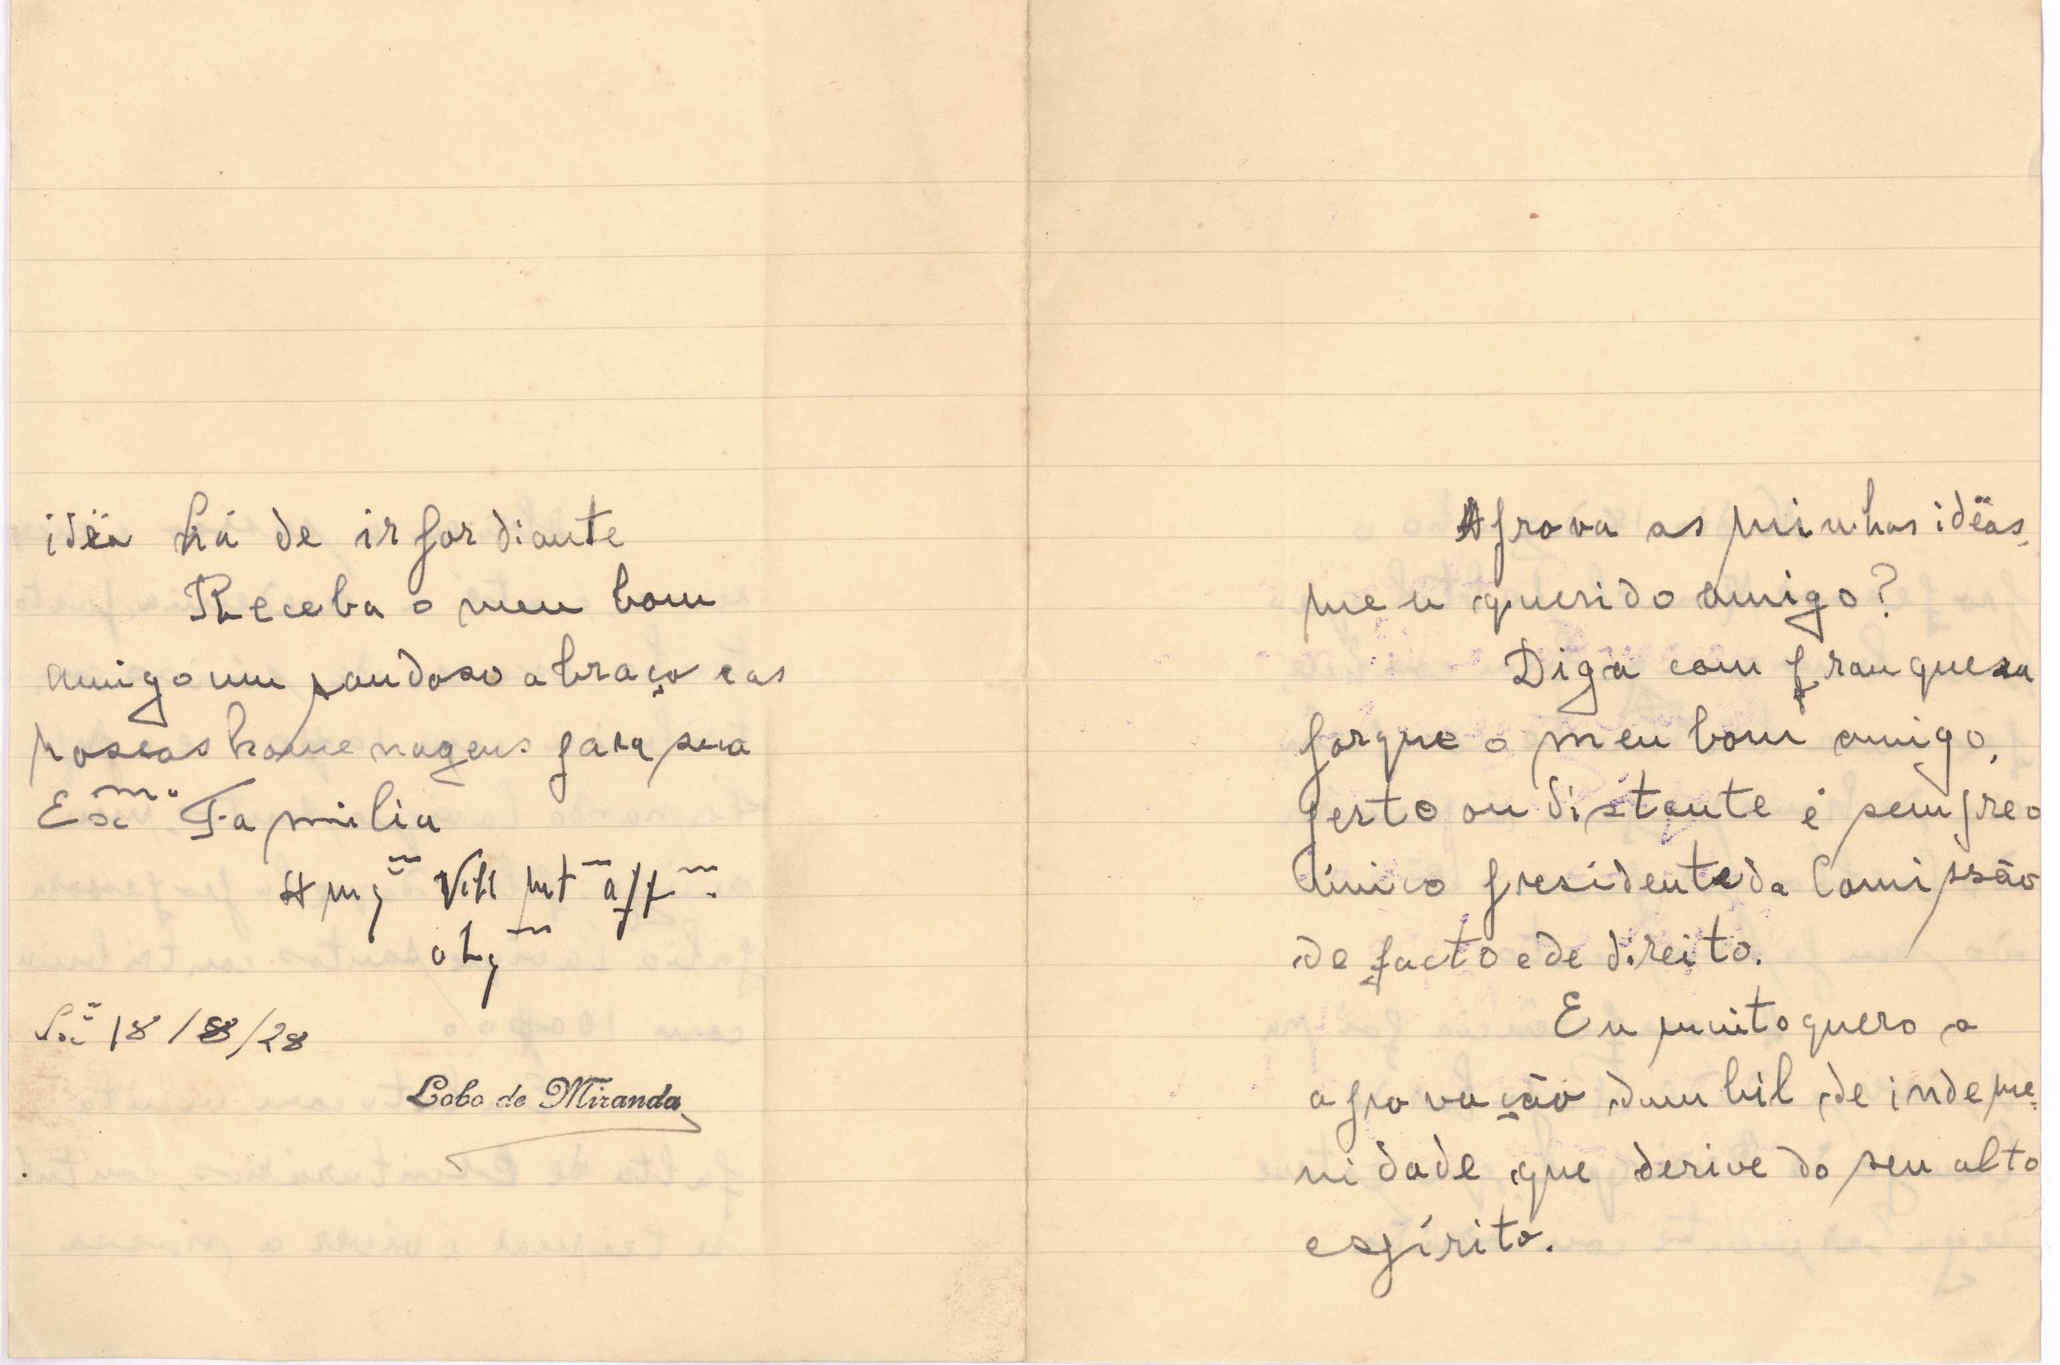 idëa há de ir por diante
Receba o meu bom
amigo um saudoso abraço e as
nossas homenagens para sua
Exmª Familia
Amgº Velº mtº affº
obgº
S/C 18/8/28
Lobo de Miranda
Aprova as minhas idëas,
meu querido amigo?
Diga com franquesa
porque o meu bom amigo,
perto ou distante é sempre o
único presidente da Comissão
de facto e de direito.
Eu muito quero a
aprovação dum bil de indeme-
nidade que derive do seu alto
espírito.